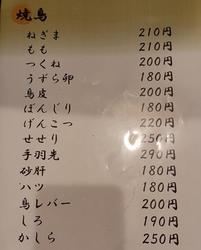 焼鳥
ねぎま 210円
もも 210円
つくね 200円
うずら卵 180円
鳥皮 200円
ぼんじり 180円
げんこつ 220円
せせり 250円
手羽先 290円
砂肝 180円
ハツ 180円
鳥レバー 200円
しろ 190円
かしら 250円